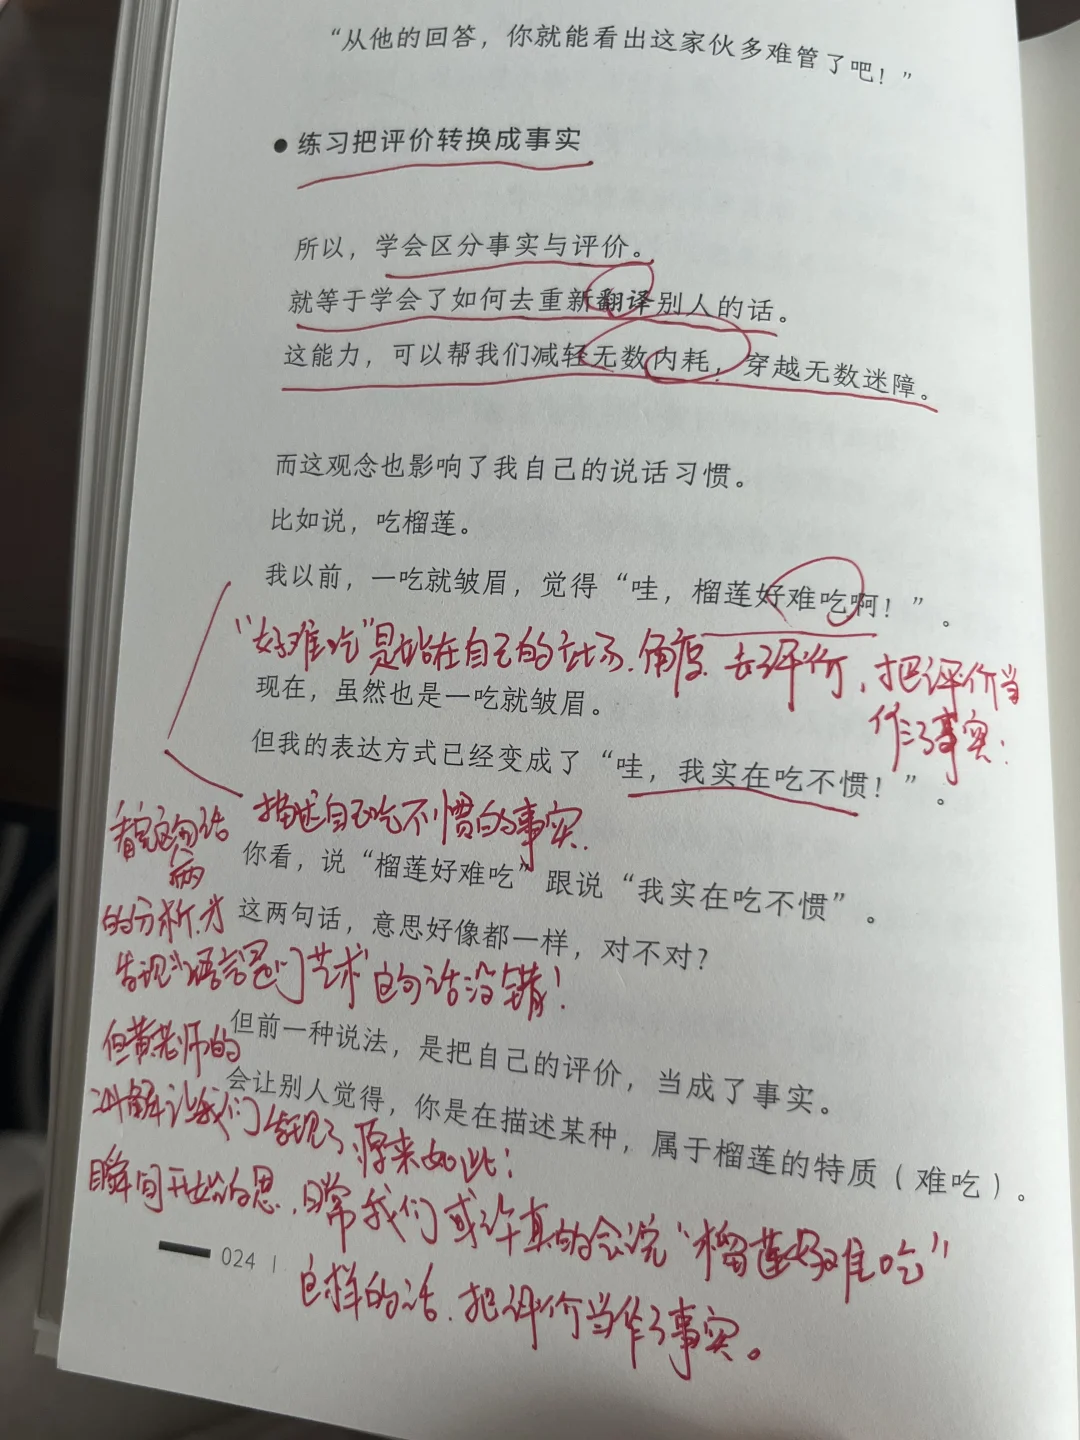 “从他的回答，你就能看出这家伙多难管了吧！”
● 练习把评价转换成事实
所以，学会区分事实与评价。
就等于学会了如何去重新翻译别人的话。
这能力，可以帮我们减轻无数内耗，穿越无数迷障。
而这观念也影响了我自己的说话习惯。
比如说，吃榴莲。
我以前，一吃就皱眉，觉得“哇，榴莲好难吃啊！”。
“好难吃”是站在自己的立场、角度去评价，把评价当
作了事实；
现在，虽然也是一吃就皱眉。
但我的表达方式已经变成了“哇，我实在吃不惯！”。
描述自己吃不惯的事实.
你看，说“榴莲好难吃”跟说“我实在吃不惯”。
这两句话，意思好像都一样，对不对？
看完这两句话
的分析，才
发现“语言是门艺术”这句话没错！
但前一种说法，是把自己的评价，当成了事实。
会让别人觉得，你是在描述某种，属于榴莲的特质（难吃）。
但黄老师的
讲解让我们发现了原来如此；
瞬间开始自思，日常我们或许真的会说“榴莲好难吃”
这样的话，把评价当作了事实。
024